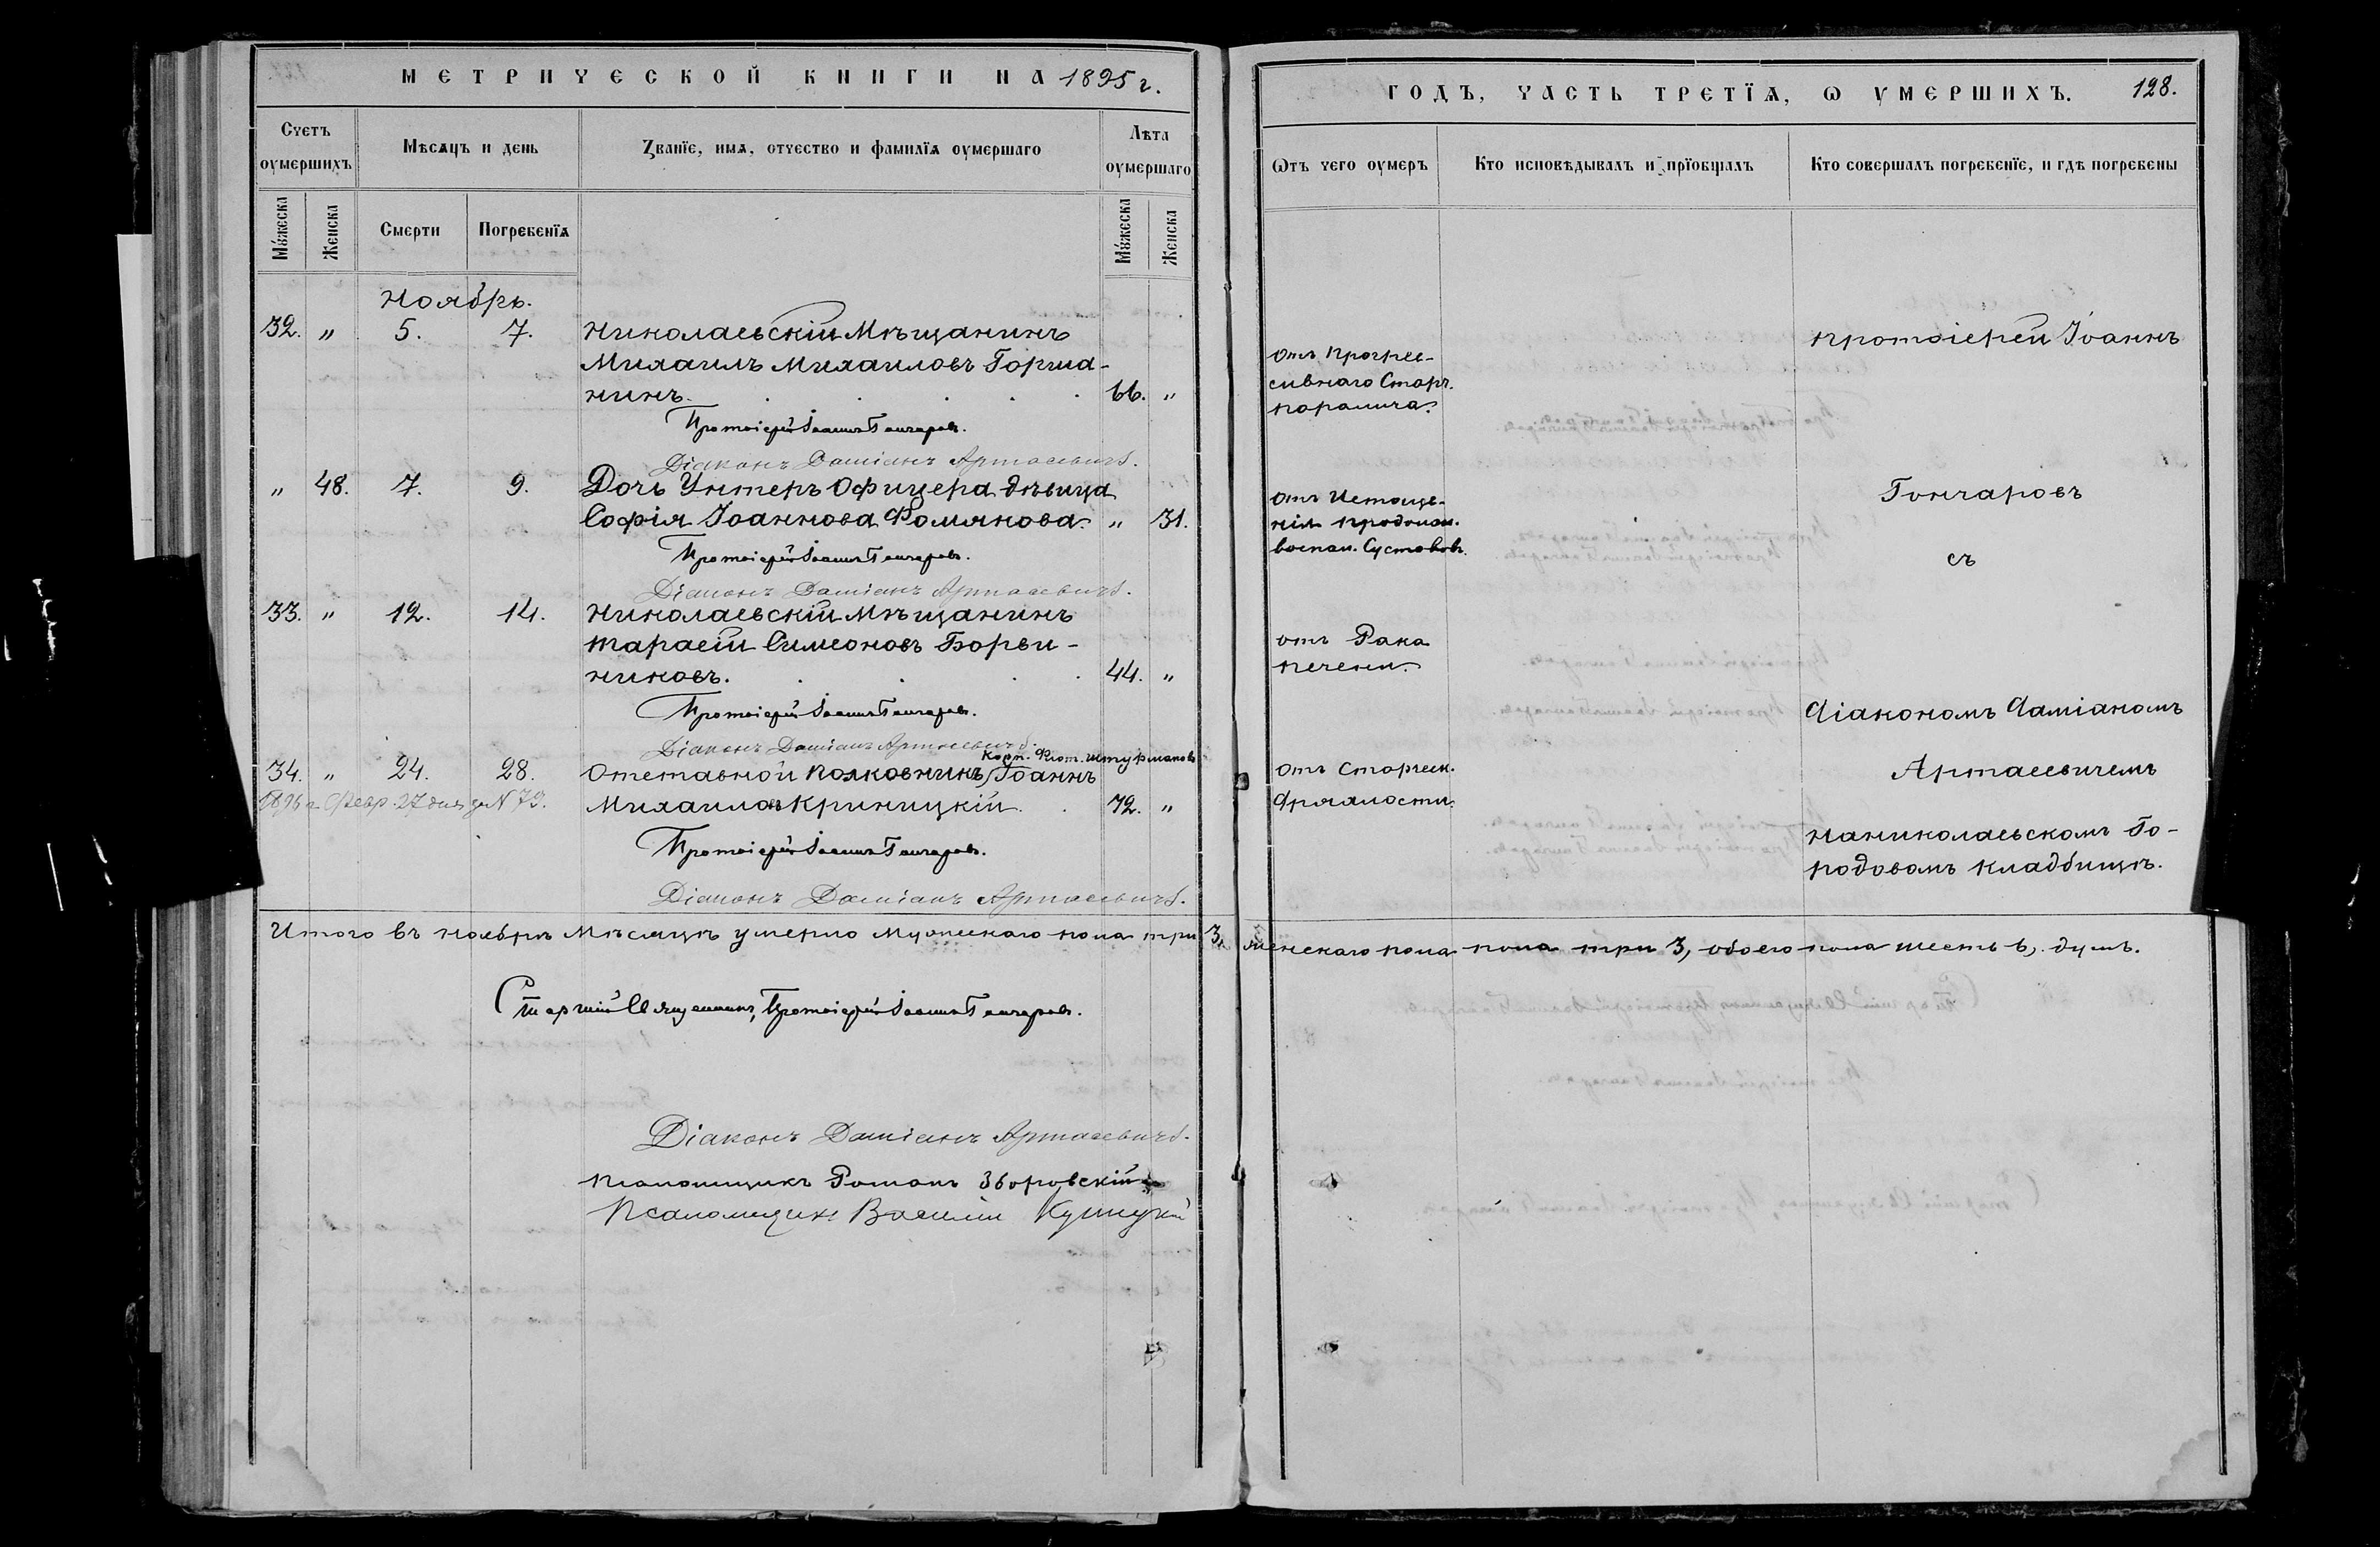 МЕТРИЧЕСКОЙ КНИГИ НА 1895 г.
Счетъ оумершихъ
Мѣсяцъ и день
Званїе, имя, отчество и фамилїя оумершаго
Лѣта оумершаго
Мꙋжеска
Женска
Смерти
Погребенїя
Мꙋжеска
Женска
Ноябрь.
32. „ 5. 7. Николаевскій Мѣщанинъ
Михаилъ Михаиловъ Горша-
нинъ. 66. „
Протоіерей Іоаннъ Гончаровъ.
Діаконъ Даміанъ Артасевичъ.
„ 48. 7. 9. Дочь Унтеръ Офицера дѣвица
Софія Іоаннова Фомянова. „ 31.
Протоіерей Іоаннъ Гончаровъ.
Діаконъ Даміанъ Артасевичъ.
33. „ 12. 14. Николаевскій Мѣщанинъ
Тарасій Симеоновъ Борви-
никовъ. 44. „
Протоіерей Іоаннъ Гончаровъ.
Діаконъ Даміанъ Артасевичъ.
Корп. Флот. Штурмановъ
34. „ 24. 28. Отставной Полковникъ Іоаннъ
1896 г. Февр. 27 дня за N 73. Михаиловъ Криницкій. 72. „
Протоіерей Іоаннъ Гончаровъ.
Діаконъ Даміанъ Артасевичъ.
Итого въ ноябрѣ Мѣсяцѣ умерло мужескаго пола три 3,
Старшій Священникъ, Протоіерей Іоаннъ Гончаровъ.
Діаконъ Даміанъ Артасевичъ.
Псаломщикъ Романъ Зборовскій
Псаломщикъ Василій
ГОДЪ, ЧАСТЬ ТРЕТЇЯ, Ѡ УМЕРШИХЪ. 128.
Ѡтъ чего оумеръ
Кто исповѣдывалъ и прїобщалъ
Кто совершалъ погребенїе, и гдѣ погребены
отъ Прогрес-
сивнаго Старч.
паралича.
отъ Истоще-
нія продолж.
воспал. Суставовъ.
отъ Рака
печени.
отъ Старческ.
дряхлости.
Протоіерей Іоаннъ
Гончаровъ
съ
Діакономъ Даміаномъ
Артасевичемъ
на Николаевскомъ Го-
родовомъ кладбищѣ.
женскаго пола пола три 3, обоего пола шесть 6, душъ.